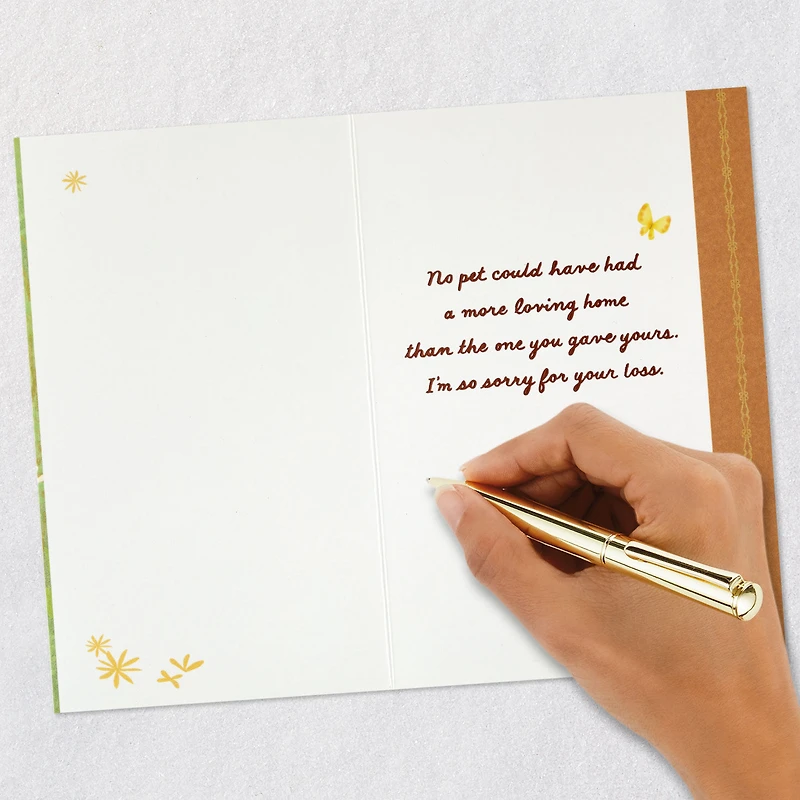 No pet could have had
a more loving home
than the one you gave yours.
I'm so sorry for your loss.